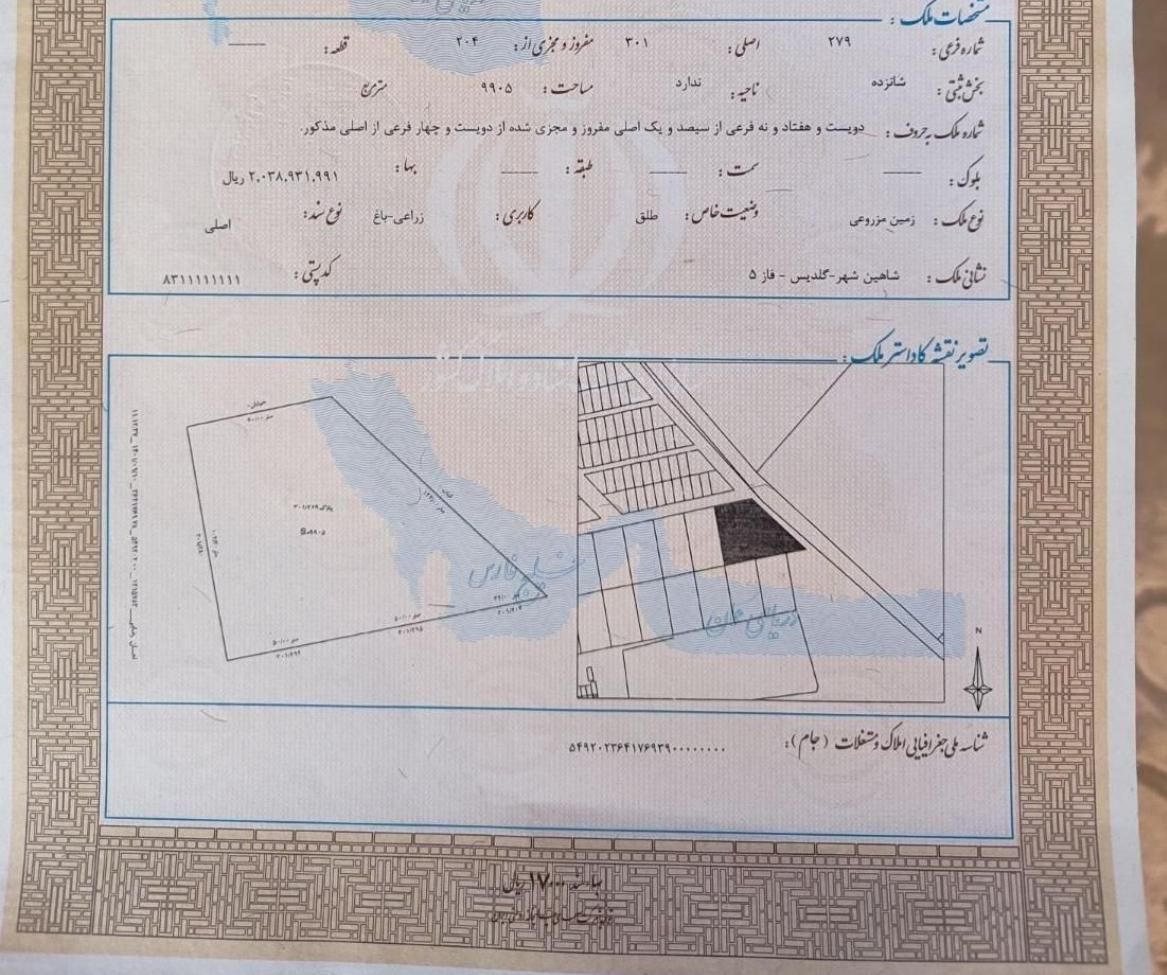 مشخصات ملک :
شماره فرعی : ۲۷۹ اصلی : ۳۰۱ مفروز و مجزی از : ۲۰۴ قطعه :
بخش ثبتی : شانزده ناحیه : ندارد مساحت : ۹۹۰۵ مترمربع
شماره ملک به حروف : دویست و هفتاد و نه فرعی از سیصد و یک اصلی مفروز و مجزی شده از دویست و چهار فرعی از اصلی مذکور.
بلوک : سمت : طبقه : بها : ۲،۰۳۸،۹۳۱،۹۹۱ ریال
نوع ملک : زمین مزروعی وضعیت خاص : طلق کاربری : زراعی-باغ نوع سند : اصلی
نشانی ملک : شاهین شهر-گلدیس - فاز ۵ کدپستی : ۸۳۱۱۱۱۱۱۱۱
تصویر نقشه کاداستر ملک :
خلیج فارس
دریای عمان
N
شناسه ملی جغرافیایی املاک و مستغلات (جام) : ۵۴۹۲۰۲۳۶۴۱۷۶۹۳۹۰۰۰۰۰۰۰۰
بهاء سند ۱۷۰۰۰۰ ریال